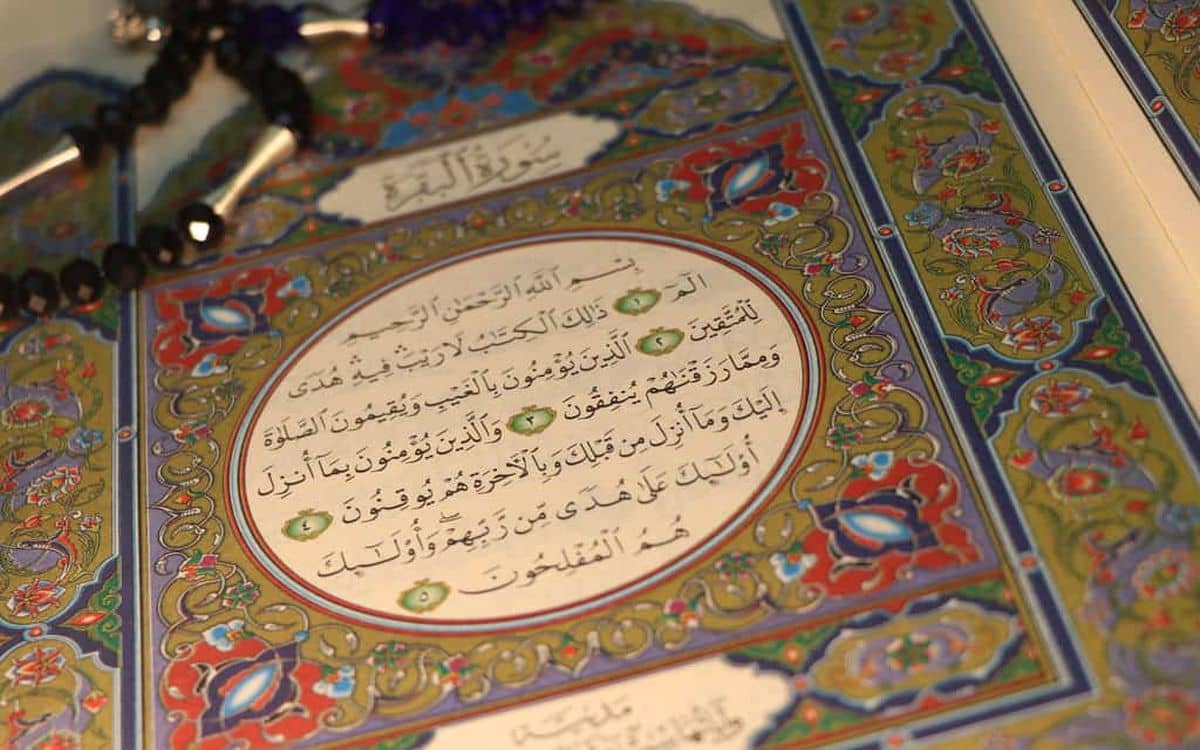 سُورَةُ ٱلْبَقَرَةِ
بِسْمِ ٱللَّهِ ٱلرَّحْمَٰنِ ٱلرَّحِيمِ
الٓمٓ ١ ذَٰلِكَ ٱلْكِتَٰبُ لَا رَيْبَ ۛ فِيهِ ۛ هُدًى
لِّلْمُتَّقِينَ ٢ ٱلَّذِينَ يُؤْمِنُونَ بِٱلْغَيْبِ وَيُقِيمُونَ ٱلصَّلَوٰةَ
وَمِمَّا رَزَقْنَٰهُمْ يُنفِقُونَ ٣ وَٱلَّذِينَ يُؤْمِنُونَ بِمَآ أُنزِلَ
إِلَيْكَ وَمَآ أُنزِلَ مِن قَبْلِكَ وَبِٱلْءَاخِرَةِ هُمْ يُوقِنُونَ ٤
أُو۟لَٰٓئِكَ عَلَىٰ هُدًى مِّن رَّبِّهِمْ ۖ وَأُو۟لَٰٓئِكَ
هُمُ ٱلْمُفْلِحُونَ ٥
مدنية